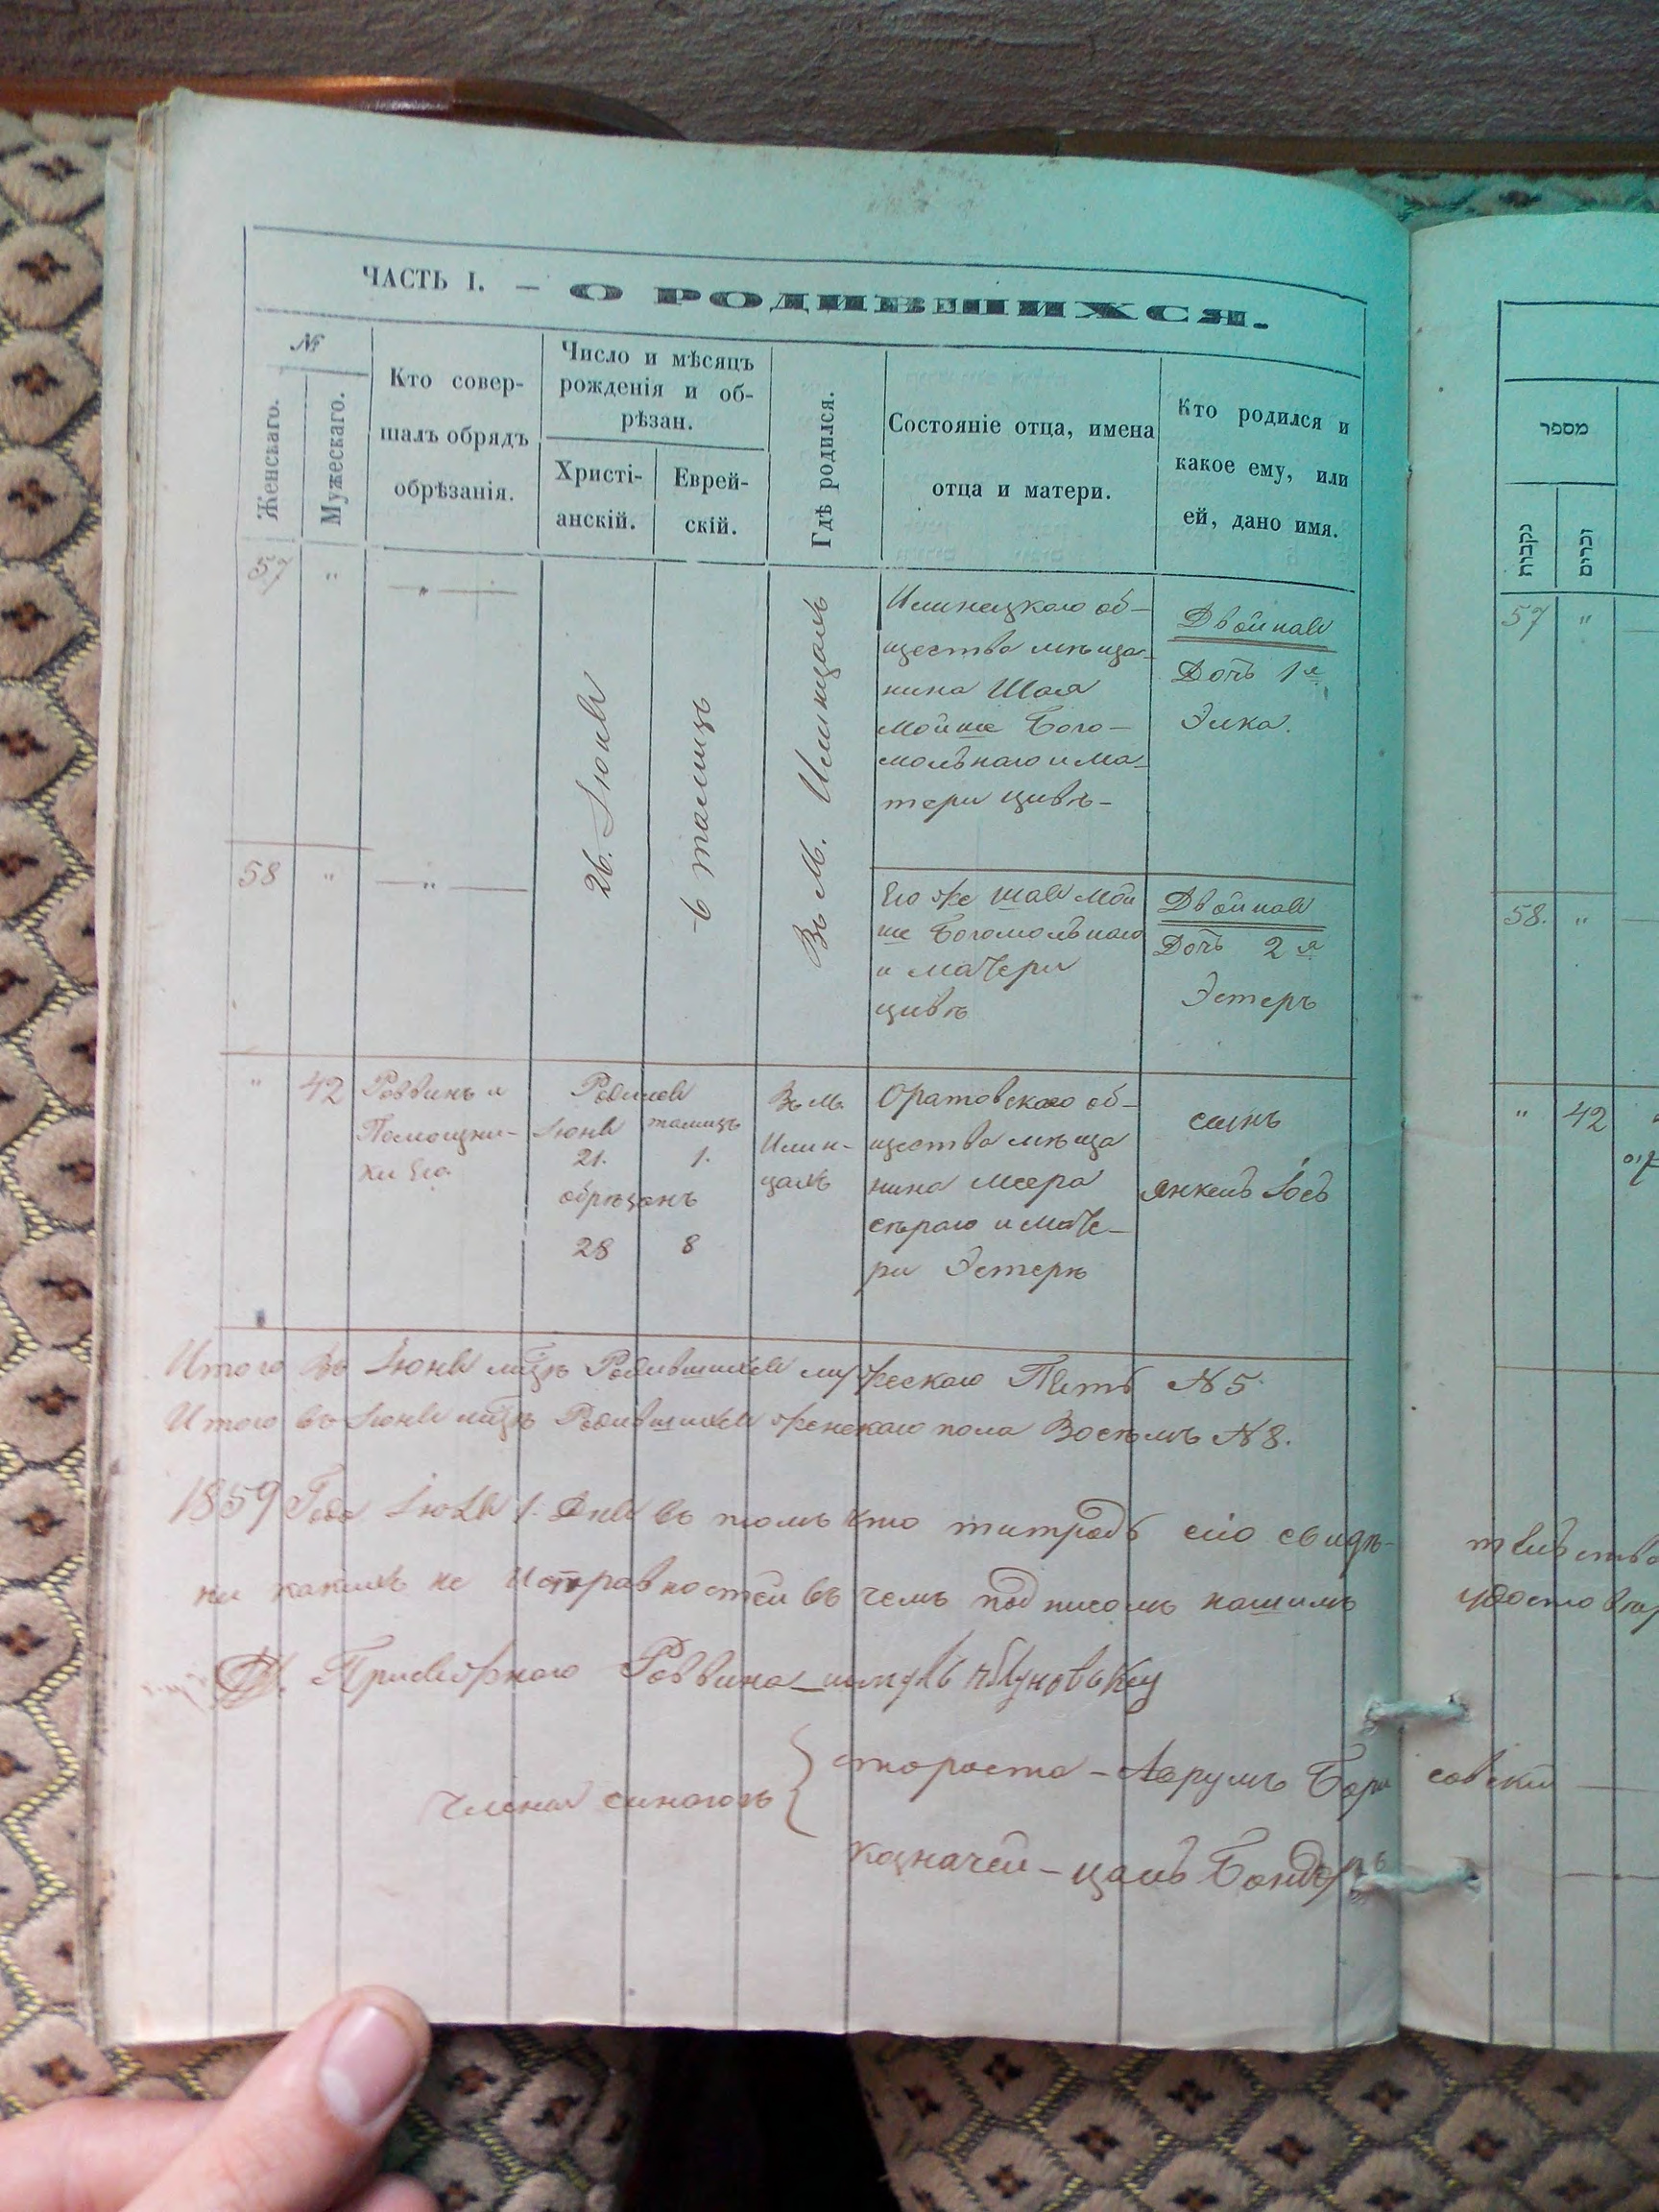 ЧАСТЬ I. – О РОДИВШИХСЯ.
№
Женскаго.
Мужескаго.
Кто совер-
шалъ обрядъ
обрѣзанія.
Число и мѣсяцъ
рожденія и об-
рѣзан.
Христі-
анскій.
Еврей-
скій.
Гдѣ родился.
Состояніе отца, имена
отца и матери.
Кто родился и
какое ему, или
ей, дано имя.
57 " — " —
26. Іюня
6 тамицъ
Въ М. Илинцахъ
Илинецкаго об-
щества мѣща-
нина Шая
Мойше Бого-
мольнаго и ма-
тери Цивѣ-
Двойная
Дочь 1я
Элка.
58 " — " —
Его же Шая Мой
ше Богомольнаго
и матери
Цивѣ
Двойная
Дочь 2я
Эстеръ
" 42
Раввинъ и
Помощни-
ки Его
Родился
Іюня тамицъ
21. 1.
обрѣзанъ
28 8
Въ М.
Илин-
цахъ
Оратовскаго об-
щества мѣща
нина Меера
Сѣраго и мате-
ри Эстерѣ
сынъ
Янкель Іось
Итого въ Іюня мцѣ Родившихся мужескаго Пять N 5
Итого въ Іюня мцѣ Родившихся женскаго пола Восѣмъ N 8.
1859 Года Іюля 1. Дня въ томъ что титрадь сію свидѣ-
ни какихъ не исправностей въ чемъ подписомъ нашимъ
Присяжнаго Раввина
члены синагогѣ
староста – Аврумъ Бори совски
казначей – Цаль
מספר
נקבות
זכרים
57 "
58. "
" 42